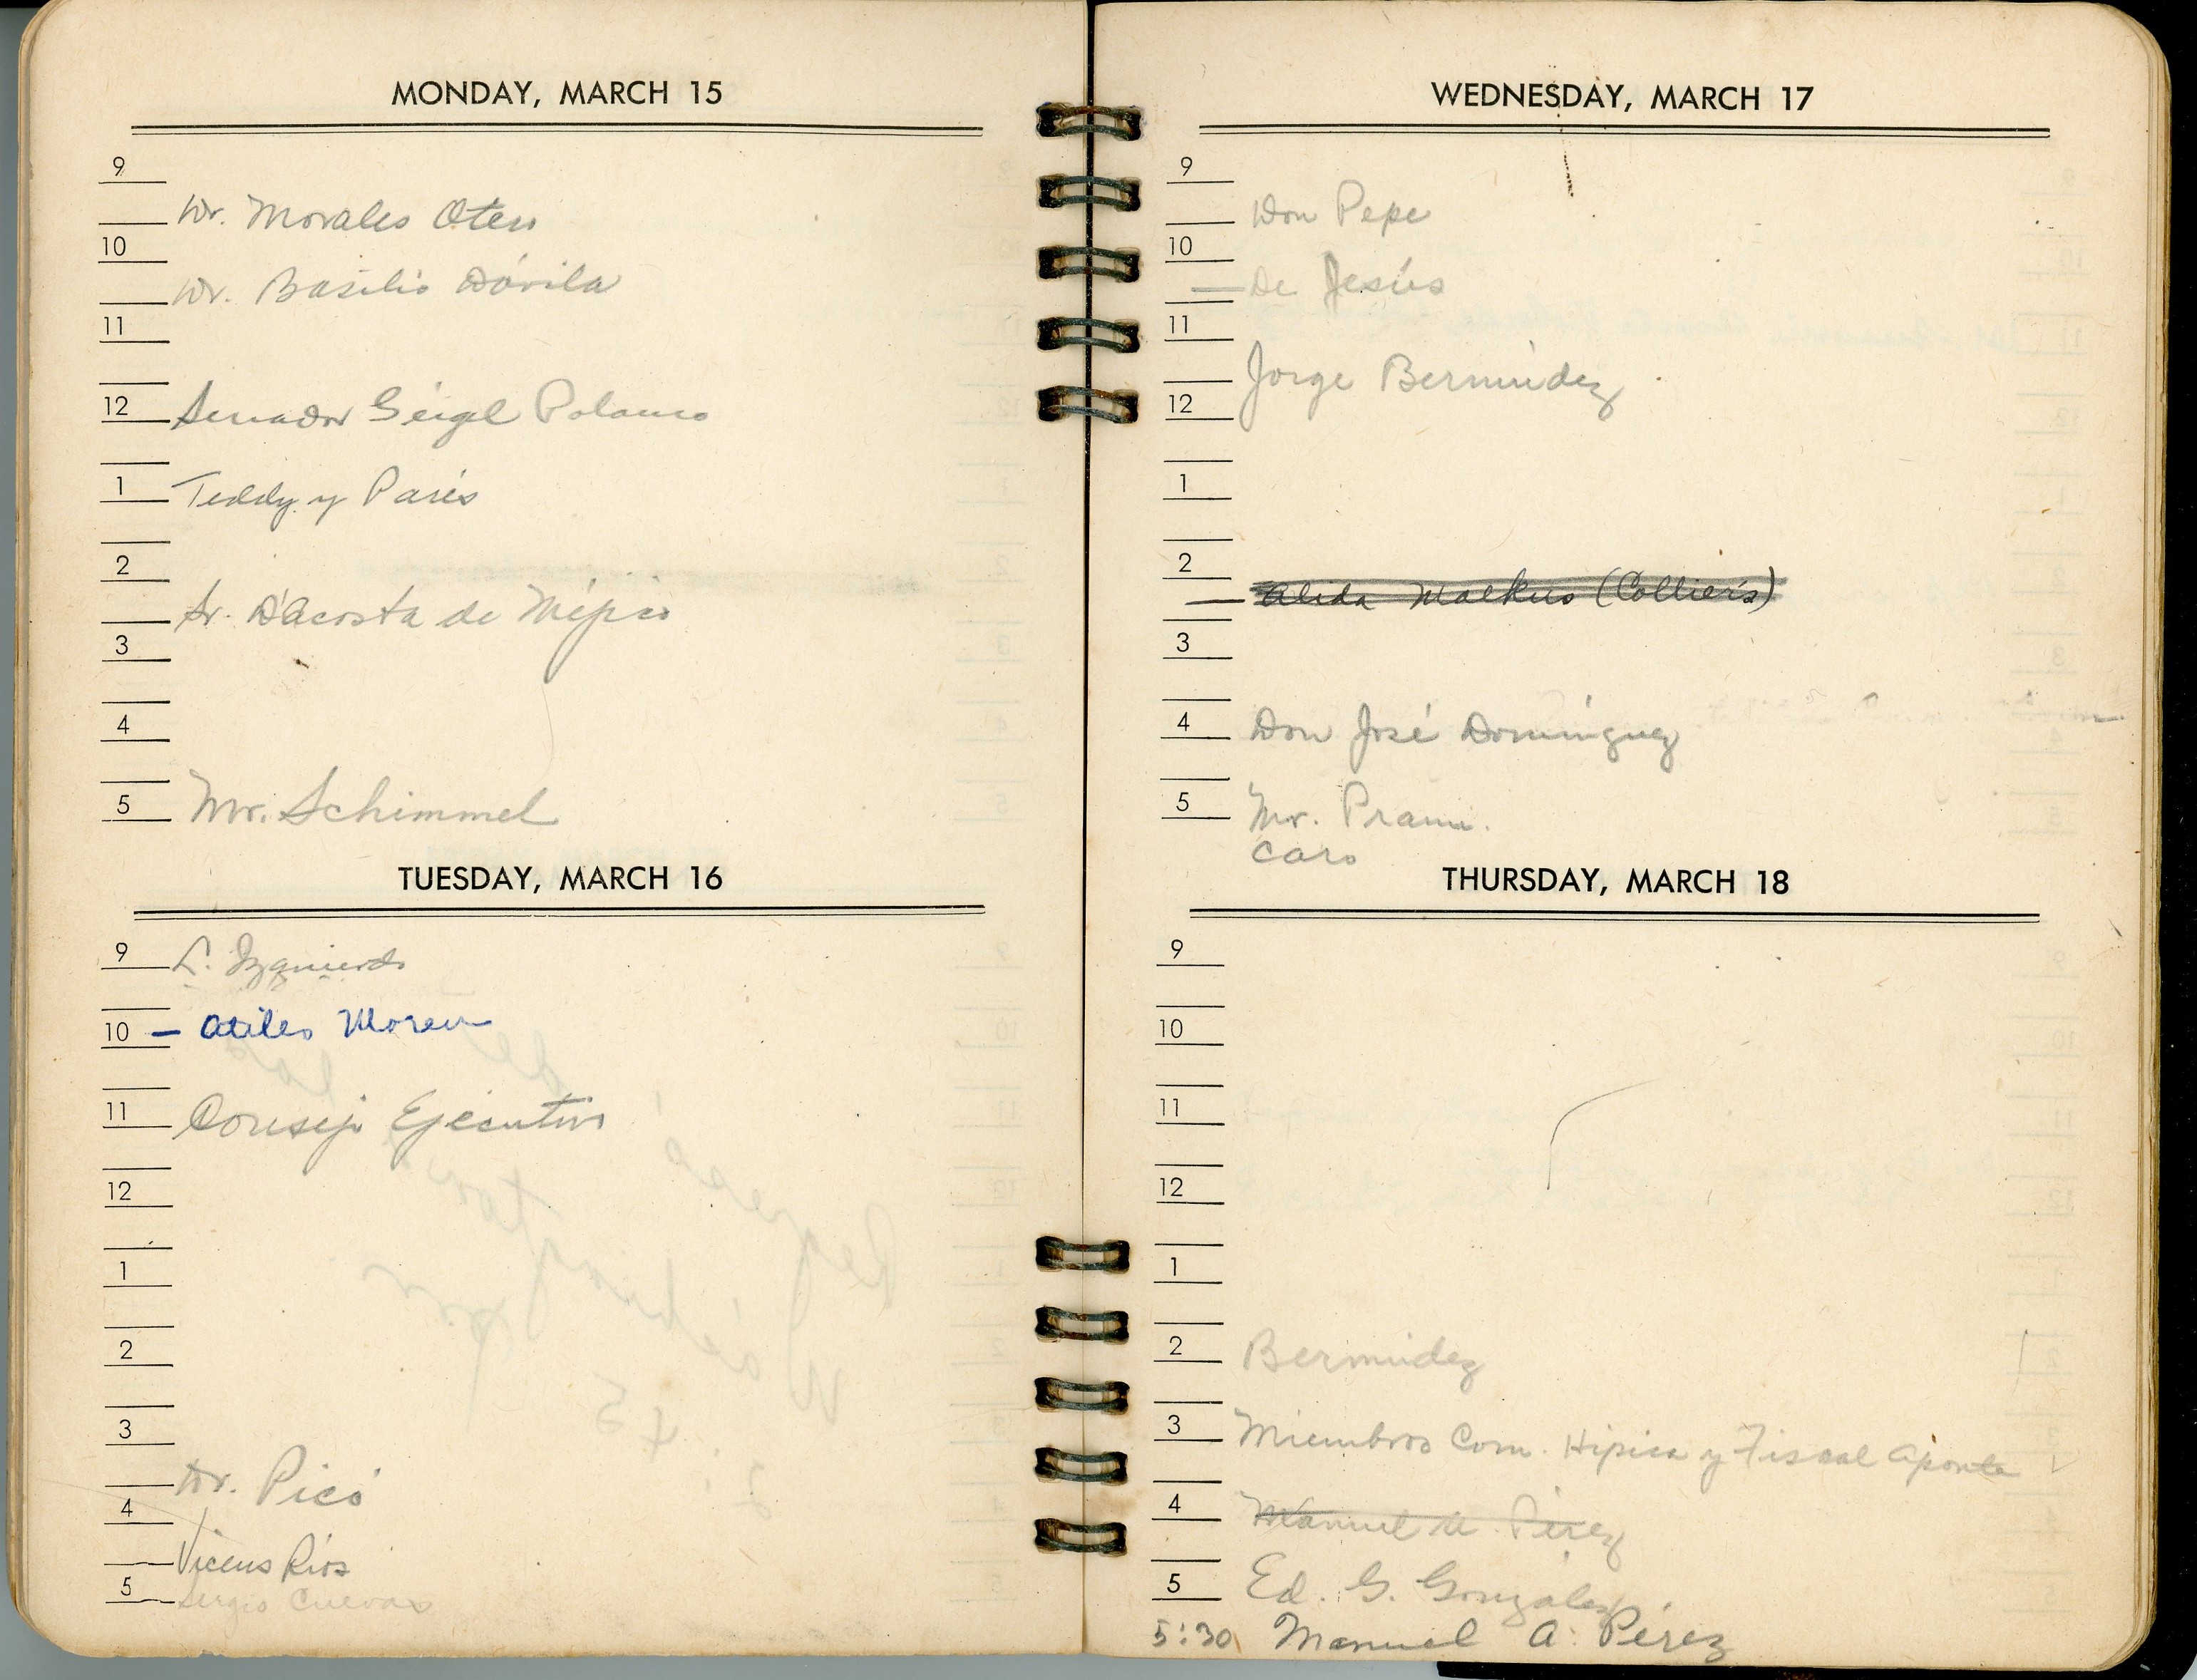 MONDAY, MARCH 15
9
Dr. Morales Otero
10
Dr. Basilio Dávila
11
12 Senador Géigel Polanco
1 Teddy y Parés
2
Sr. D'Acosta de Méjico
3
4
5 Mr. Schimmel
TUESDAY, MARCH 16
9 L. Izquierdo
10 — Atiles Moreu
11 Consejo Ejecutivo
12
1
2
3
Dr. Picó
4
Vicens Ríos
5 Sergio Cuevas
WEDNESDAY, MARCH 17
9
Don Pepe
10
— De Jesús
11
Jorge Bermúdez
12
1
2
— Alida Malkus (Collier's)
3
4 Don José Domínguez
5 Mr. 
Caro
THURSDAY, MARCH 18
9
10
11
12
1
2 Bermúdez
3 Miembros Com. Hípica y Fiscal Aponte
4 Manuel A. Pérez
5 Ed. G. González
5:30 Manuel A. Pérez